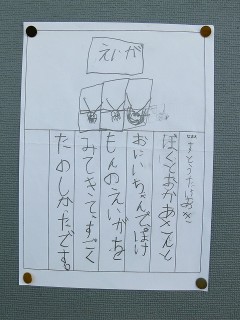 えいが
さとうたけあき
ぼくとおかあさんと
おにいちゃんでぽけ
もんのえいがを
みてきて、すごく
たのしかたです。